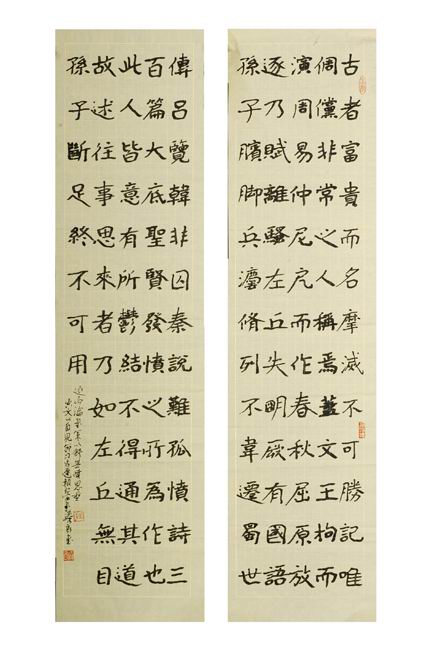 古者富貴而名摩滅不可勝記唯
倜儻非常之人稱焉蓋文王拘而
演周易仲尼厄而作春秋屈原放
逐乃賦離騷左丘失明厥有國語
孫子臏腳兵灋脩列不韋遷蜀世
傳呂覽韓非囚秦說難孤憤詩三
百篇大底聖賢發憤之所為作也
此人皆意有所鬱結不得通其道
故述往事思來者乃如左丘無目
孫子斷足終不可用